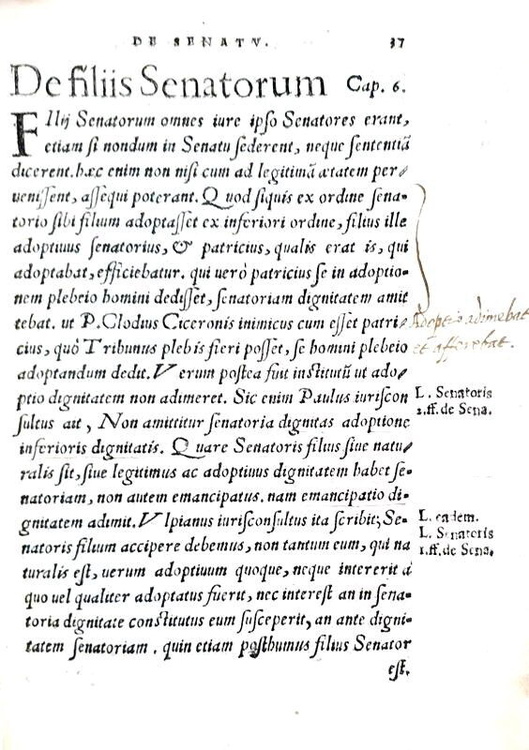 DE SENATV. 37
De filiis Senatorum Cap. 6.
FIlij Senatorum omnes iure ipso Senatores erant,
etiam si nondum in Senatu sederent, neque sententiã
dicerent. hæc enim non nisi cum ad legitimã ætatem per/
uenissent, assequi poterant. Quod siquis ex ordine sena-
torio sibi filium adoptasset ex inferiori ordine, filius ille
adoptiuus senatorius, & patricius, qualis erat is, qui
adoptabat, efficiebatur. qui uerò patricius se in adoptio-
nem plebeio homini dedisset, senatoriam dignitatem amit
tebat. ut P. Clodius Ciceronis inimicus cum esset patri/
cius, quò Tribunus plebis fieri posset, se homini plebeio
adoptandum dedit. Verum postea fuit institutũ ut ado/
ptio dignitatem non adimeret. Sic enim Paulus iuriscon
sultus ait, Non amittitur senatoria dignitas adoptione
inferioris dignitatis. Quare Senatoris filius siue natu/
ralis sit, siue legitimus ac adoptiuus dignitatem habet se-
natoriam, non autem emancipatus. nam emancipatio di-
gnitatem adimit. Vlpianus iurisconsultus ita scribit; Se-
natoris filium accipere debemus, non tantum eum, qui na
turalis est, uerum adoptiuum quoque, neque intererit à
quo uel qualiter adoptatus fuerit, nec interest an in sena-
toria dignitate constitutus eum susceperit, an ante digni-
tatem senatoriam. quin etiam posthumus filius Senator
est.
Adoptio adimebat
et afferebat.
L. Senatoris
1.ff.de Sena.
L. eadem.
L. Senatoris
1.ff.de Sena.